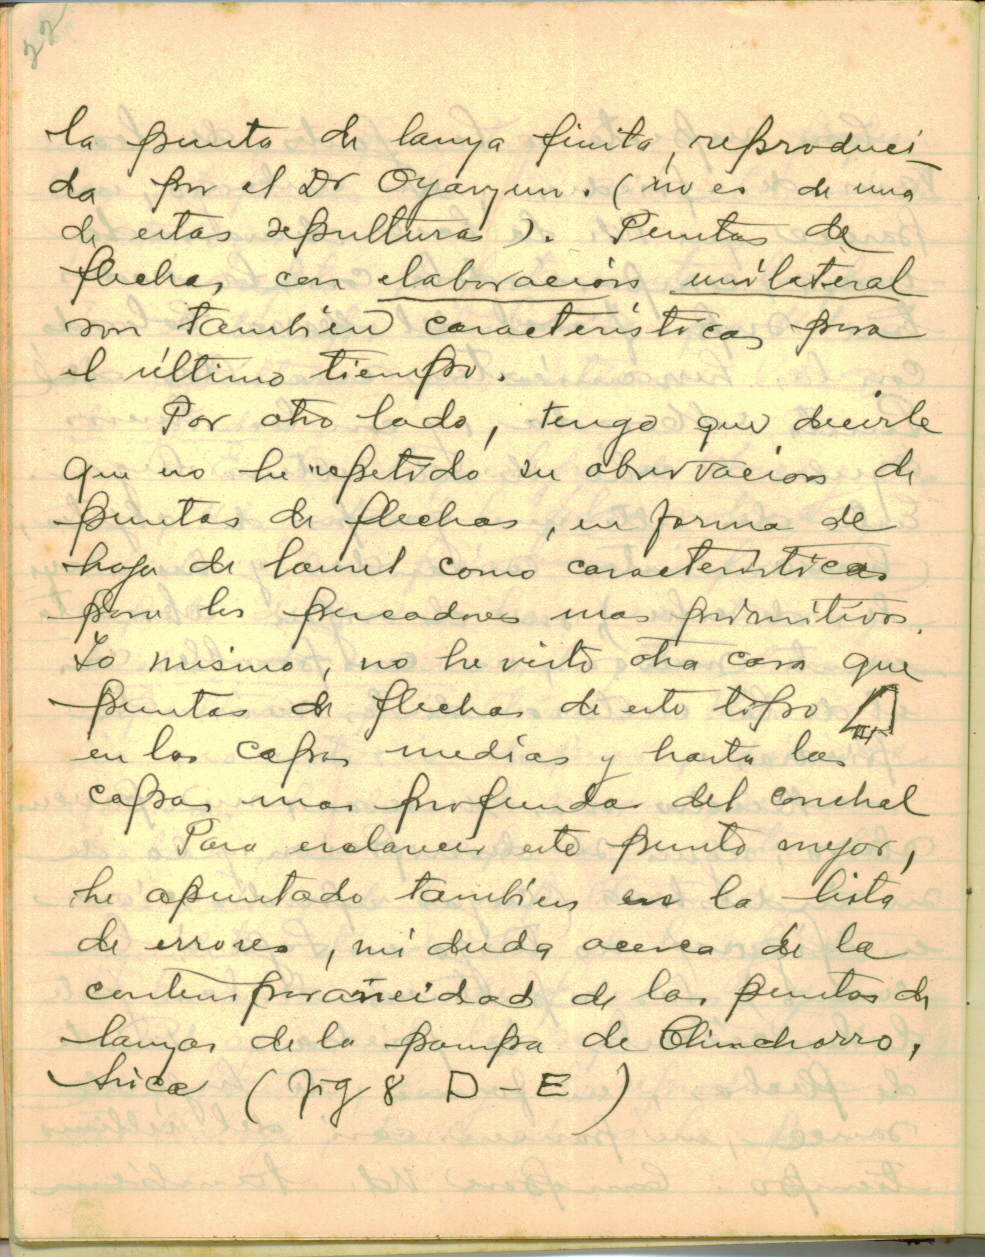 22
la punta de lanza finita, reproduci
da por el Dr Oyarzun. (no es de una
de estas sepulturas). Puntas de
flechas con elaboración unilateral
son también características para
el último tiempo.
Por otro lado, tengo que decirle
que no he repetido su observación de
puntas de flechas, en forma de
hoja de laurel como características
para los pescadores mas primitivos.
Lo mismo, no he visto otra cosa que
puntas de flechas de este tipo
en las capas medias y hasta las
capas mas profundas del conchal
Para esclarecer este punto mejor,
he apuntado también en la lista
de errores, mi duda acerca de la
contemporaneidad de las puntas de
lanzas de la pampa de Chinchorro,
Arica (fig 8 D - E)